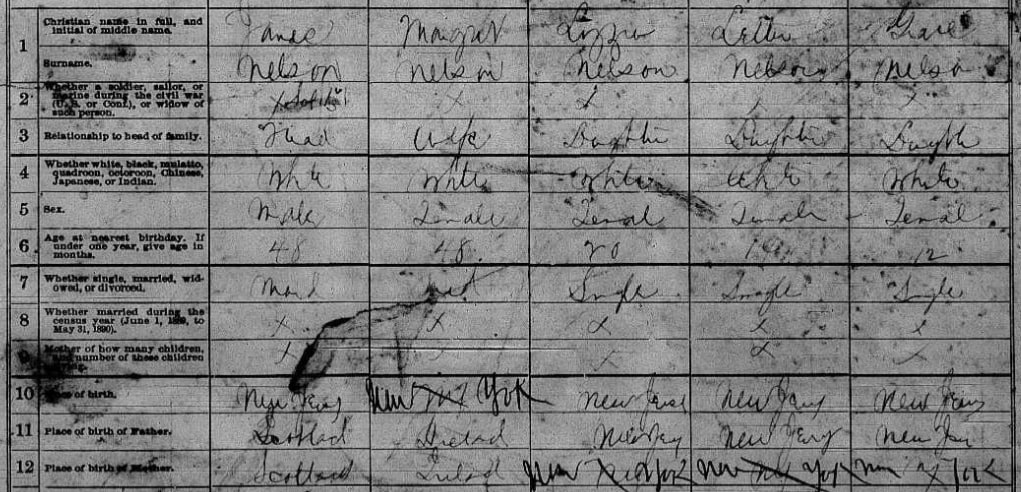 1 Christian name in full, and initial of middle name. James Margrat Lizzie Lettie Grace
Surname. Nelson Nelson Nelson Nelson Nelson
2 Whether a soldier, sailor, or marine during the civil war (U.S. or Conf.), or widow of such person. X X X X
3 Relationship to head of family. Head Wife Daughter Daughter Daughter
4 Whether white, black, mulatto, quadroon, octoroon, Chinese, Japanese, or Indian. White White White White White
5 Sex. Male Female Femal Female Femal
6 Age at nearest birthday. If under one year, give age in months. 48 48 20 12
7 Whether single, married, widowed, or divorced. Single Single Single
8 Whether married during the census year (June 1, 1889, to May 31, 1890). X X X X X
9 Mother of how many children, and number of these children living. X X X
10 Place of birth. New Jersy New York New Jersy New Jersy New Jersy
11 Place of birth of Father. Scotlad Irelad New Jersy New Jersy New Jersy
12 Place of birth of Mother. Scotland Irelad New York New York New York